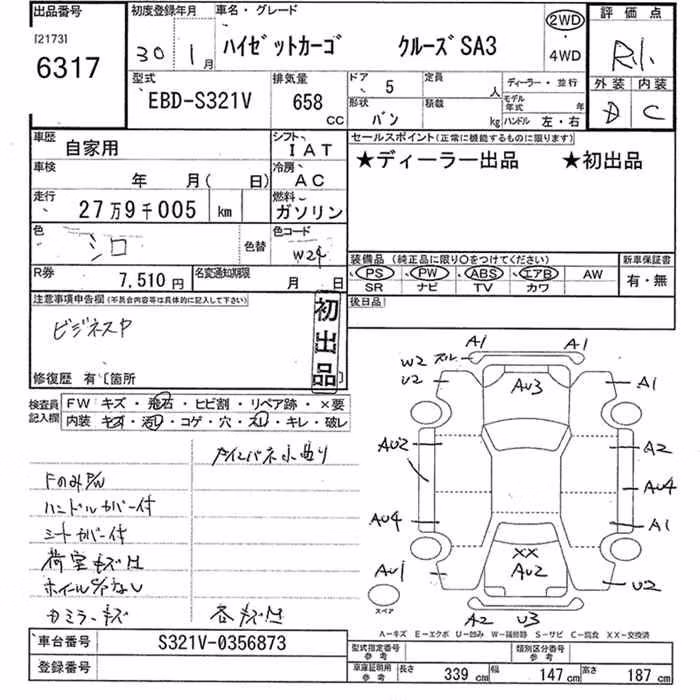 出品番号 初度登録年月 車名・グレード 評価点
[2173]
6317
30 1月 ハイゼットカーゴ クルーズSA3 2WD・4WD
R1.
型式 排気量 ドア 5 定員 人 ディーラー・並行 外装 内装
EBD-S321V 658 CC 形状 バン 積載 kg モデル年式 年 D C
ハンドル 左・右
車歴 自家用 シフト IAT セールスポイント(正常に機能するものに限ります)
★ディーラー出品 ★初出品
車検 年 月( 日) 冷房 AC
走行 27万9千005 km 燃料 ガソリン
色 シロ 色替 色コード W24
装備品 (純正品に限り〇をつけてください) 新車保証書
PS PW ABS エアB AW 有・無
SR ナビ TV カワ
R券 7,510円 名変通知期限 月 日
後日品
注意事項申告欄(不具合内容等は具体的に記入して下さい)
初出品
ビジネスP
修復歴 有〔箇所 〕
検査員記入欄 FW キズ・飛石・ヒビ割・リペア跡・×要
内装 キズ・汚レ・コゲ・穴・スレ・キレ・破レ
Fのみ P/W
ハンドルカバー付
シートカバー付
荷室キズ
A1 A1
W2 U2 AU3 A1
AU2 A2
AU4 AU4
A1
XX
AU1 AU2 U2
スペア
A2 U3
A-キズ E-エクボ U-凹み W-補修跡 S-サビ C-腐食 XX-交換済
車台番号 S321V-0356873 型式指定番号 参考 類別区分番号 参考
登録番号 車庫証明用 参考 長さ 339 cm 幅 147 cm 高さ 187 cm